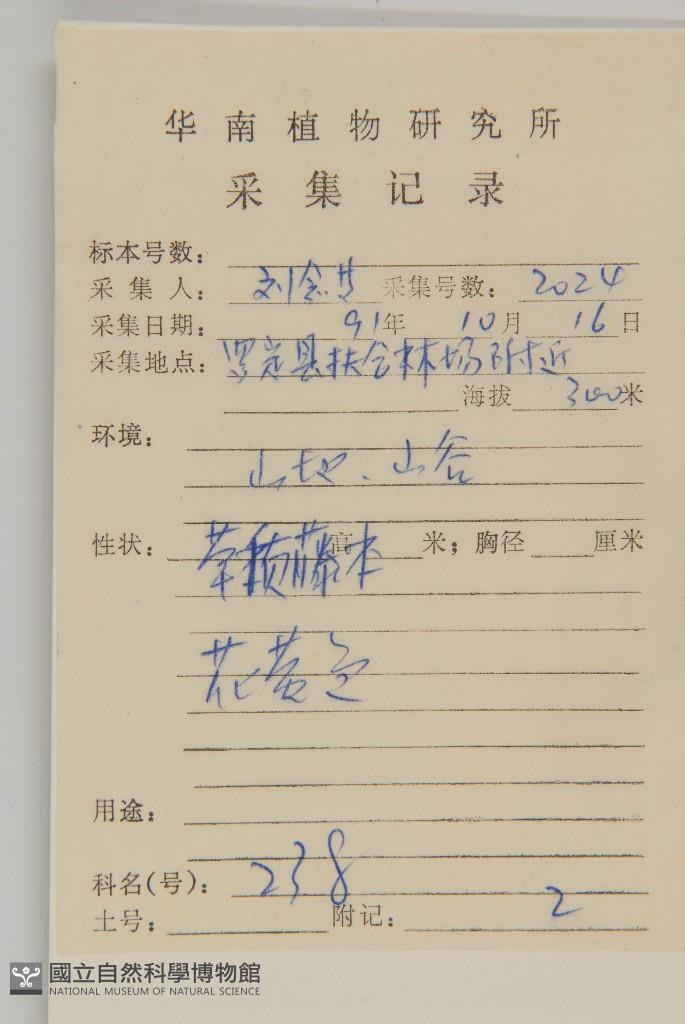 华南植物研究所
采集记录
标本号数：
采集人：刘念 采集号数：2024
采集日期：91年10月16日
采集地点：罗定县扶合林场附近
海拔300米
环境：
山地、山谷
性状：草质藤本 高 米；胸径 厘米
花黄色
用途：
科名(号)：238
土号： 附记：2
國立自然科學博物館
NATIONAL MUSEUM OF NATURAL SCIENCE